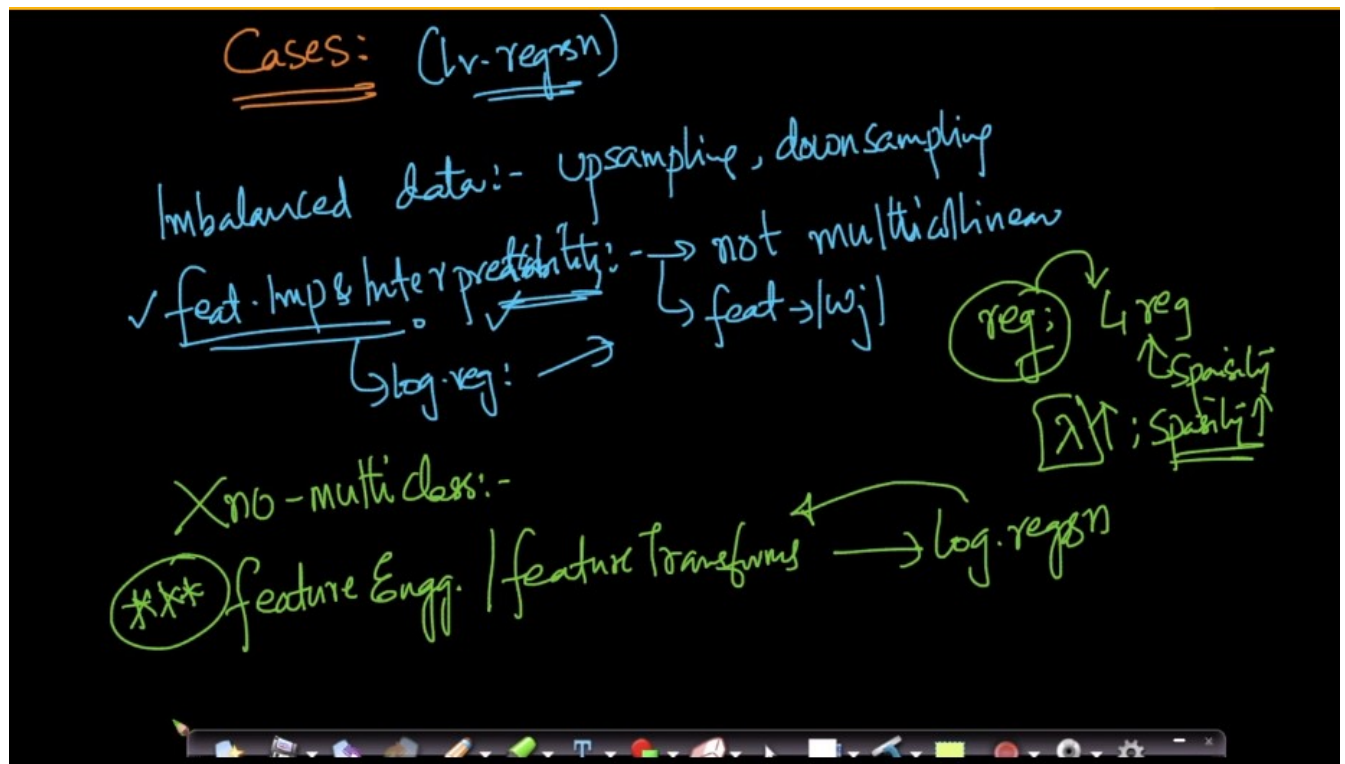 Cases: (lr. regrsn)
Imbalanced data:- upsampling, downsampling
✓ feat. Imp & Interpretability:- → not multicollinear
↳ feat → |wj|
↳ log. reg: →
reg: L1 reg
↑ Sparsity
λ↑ ; Sparsity ↑
X no-multiclass:-
*** feature Engg. / feature Transforms → log. regrsn
T